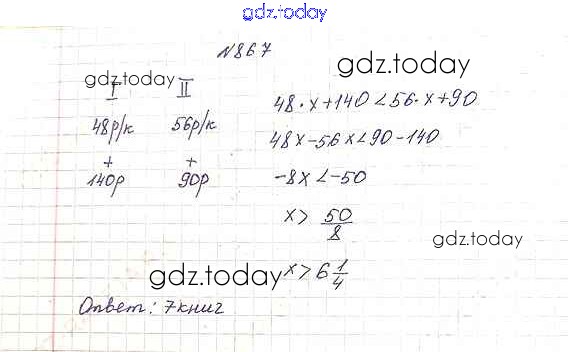 gdz.today
N867
gdz.today
gdz.today
I II
48р/к 56р/к
+ +
140р 90р
48·x+140<56·x+90
48x-56x<90-140
-8x<-50
x> 50/8
gdz.today
gdz.today
x>6 1/4
Ответ: 7книг